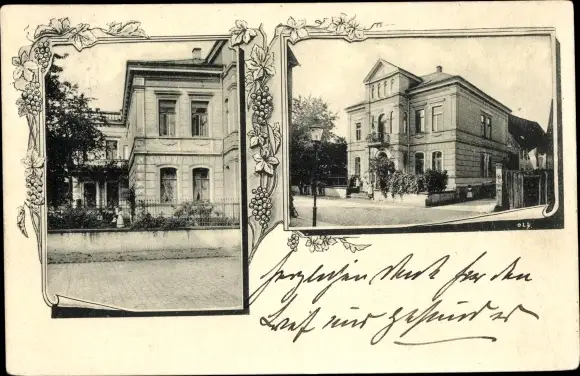 OLB.
herzlichen Dank für den
Brief und